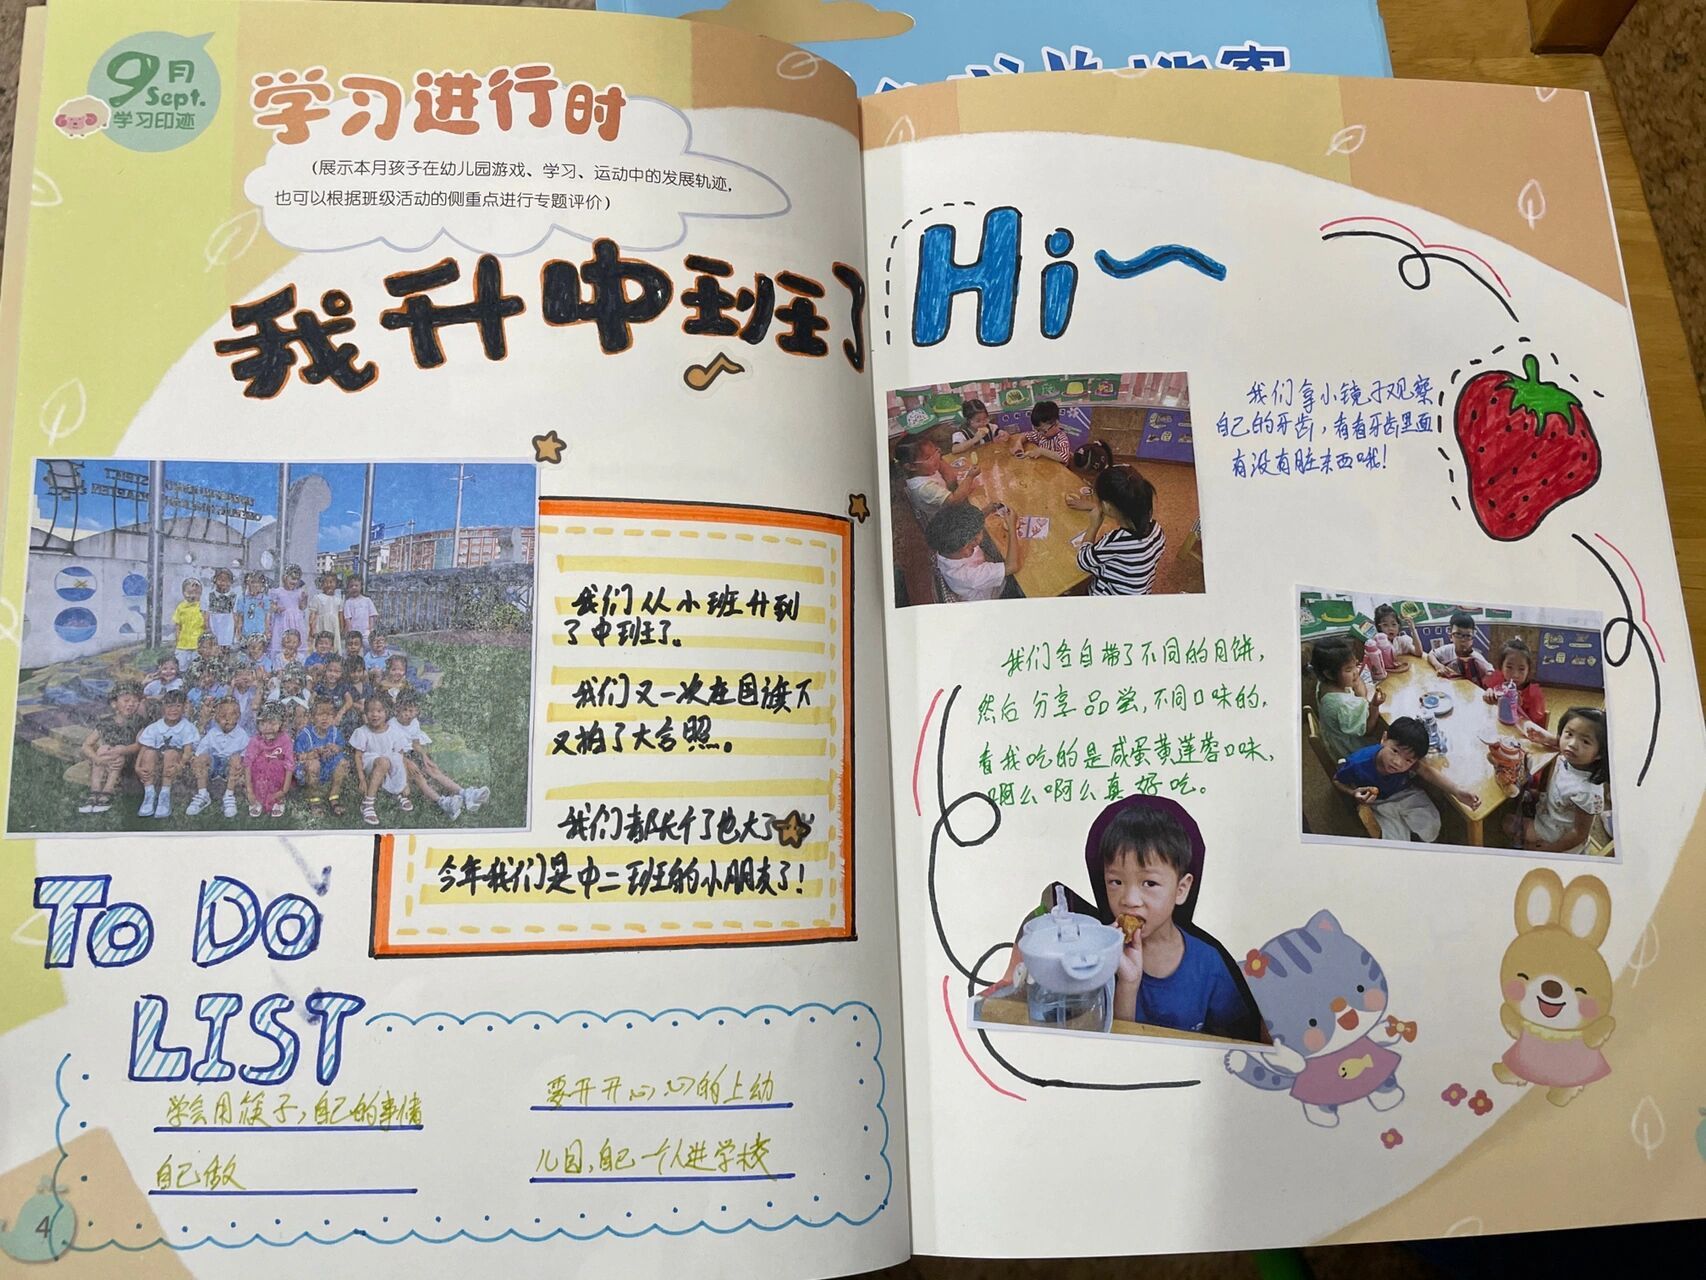 9月
Sept.
学习印迹
学习进行时
（展示本月孩子在幼儿园游戏、学习、运动中的发展轨迹，
也可以根据班级活动的侧重点进行专题评价）
我升中班了
我们从小班升到
了中班了。
我们又一次在国旗下
又拍了大合照。
我们都长个了也大了
今年我们是中二班的小朋友了！
To Do
LIST
学会用筷子，自己的事情
自己做
要开开心心的上幼
儿园，自己一个人进学校
4
Hi~
我们拿小镜子观察
自己的牙齿，看看牙齿里面
有没有脏东西哦！
我们各自带了不同的月饼，
然后分享品尝，不同口味的，
看我吃的是咸蛋黄莲蓉口味，
啊么啊么真好吃。